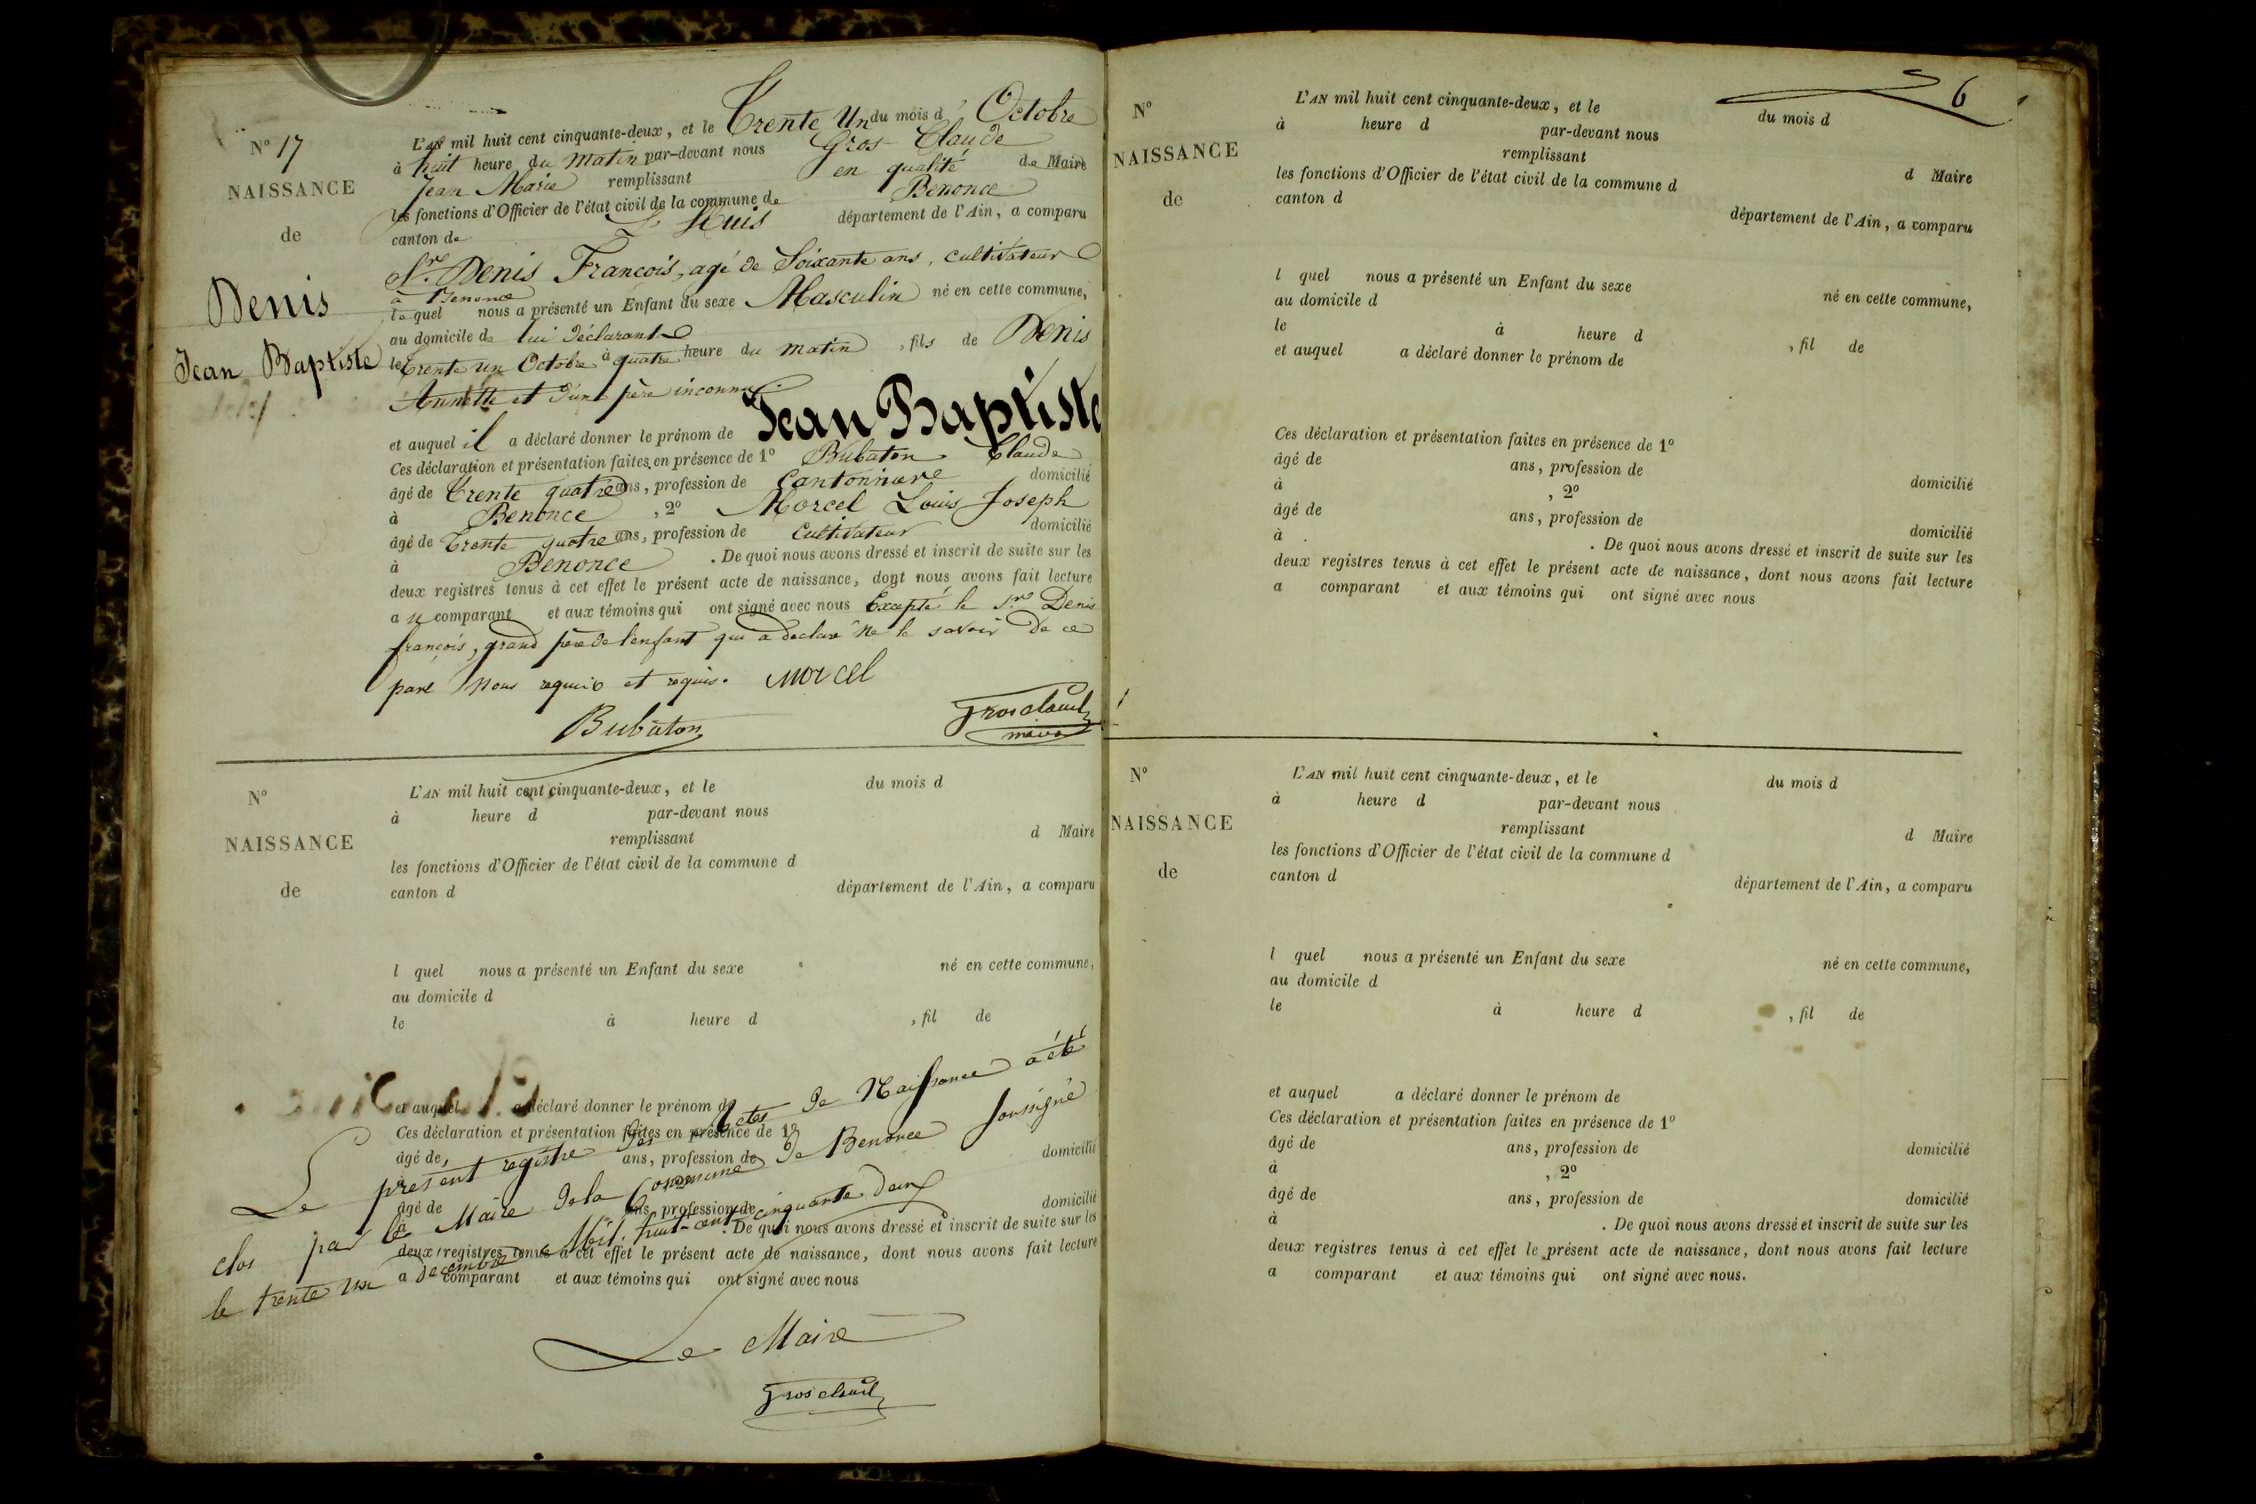 N° 17
NAISSANCE
de
Denis
Jean Baptiste
L'AN mil huit cent cinquante-deux, et le Trente Un du mois d' Octobre
à huit heure du matin par-devant nous Gros Claude
Jean Marie remplissant en qualité de Maire
les fonctions d'Officier de l'état civil de la commune de Benonce
canton de L'Huis département de l'Ain, a comparu
Sr. Denis François, agé de Soixante ans, cultivateur
à Benonce
lequel nous a présenté un Enfant du sexe Masculin né en cette commune,
au domicile de lui déclarant
le trente un Octobre à quatre heure du matin, fils de Denis
Annette et d'un père inconnu.
et auquel il a déclaré donner le prénom de Jean Baptiste
Ces déclaration et présentation faites en présence de 1° Bubaton Claude
âgé de Trente quatre ans, profession de Cantonniere domicilié
à Benonce, 2° Morcel Louis Joseph
âgé de Trente quatre ans, profession de Cultivateur domicilié
à Benonce. De quoi nous avons dressé et inscrit de suite sur les
deux registres tenus à cet effet le présent acte de naissance, dont nous avons fait lecture
au comparant et aux témoins qui ont signé avec nous Excepté le Sr. Denis
françois, grand père de l'enfant qui a déclaré ne le savoir De ce
par Nous requis et requis. morcel
Bubaton
Grosclaude
maire
N°
NAISSANCE
de
L'AN mil huit cent cinquante-deux, et le du mois d
à heure d par-devant nous
remplissant d Maire
les fonctions d'Officier de l'état civil de la commune d
canton d département de l'Ain, a comparu
l quel nous a présenté un Enfant du sexe né en cette commune,
au domicile d
le à heure d , fil de
et auquel a déclaré donner le prénom de
Ces déclaration et présentation faites en présence de 1°
âgé de ans, profession de domicilié
à
âgé de ans, profession de domicilié
à . De quoi nous avons dressé et inscrit de suite sur les
deux registres tenus à cet effet le présent acte de naissance, dont nous avons fait lecture
a comparant et aux témoins qui ont signé avec nous
Le présent registre des Actes de Naissance a été
clos par le Maire de la Commune de Benonce soussigné
le trente un décembre Mil huit-cent cinquante deux
Le Maire
Grosclaude
6
N°
NAISSANCE
de
L'AN mil huit cent cinquante-deux, et le du mois d
à heure d par-devant nous
remplissant d Maire
les fonctions d'Officier de l'état civil de la commune d
canton d département de l'Ain, a comparu
l quel nous a présenté un Enfant du sexe né en cette commune,
au domicile d
le à heure d , fil de
et auquel a déclaré donner le prénom de
Ces déclaration et présentation faites en présence de 1°
âgé de ans, profession de domicilié
à , 2°
âgé de ans, profession de domicilié
à . De quoi nous avons dressé et inscrit de suite sur les
deux registres tenus à cet effet le présent acte de naissance, dont nous avons fait lecture
a comparant et aux témoins qui ont signé avec nous
N°
NAISSANCE
de
L'AN mil huit cent cinquante-deux, et le du mois d
à heure d par-devant nous
remplissant d Maire
les fonctions d'Officier de l'état civil de la commune d
canton d département de l'Ain, a comparu
l quel nous a présenté un Enfant du sexe né en cette commune,
au domicile d
le à heure d , fil de
et auquel a déclaré donner le prénom de
Ces déclaration et présentation faites en présence de 1°
âgé de ans, profession de domicilié
à , 2°
âgé de ans, profession de domicilié
à . De quoi nous avons dressé et inscrit de suite sur les
deux registres tenus à cet effet le présent acte de naissance, dont nous avons fait lecture
a comparant et aux témoins qui ont signé avec nous.